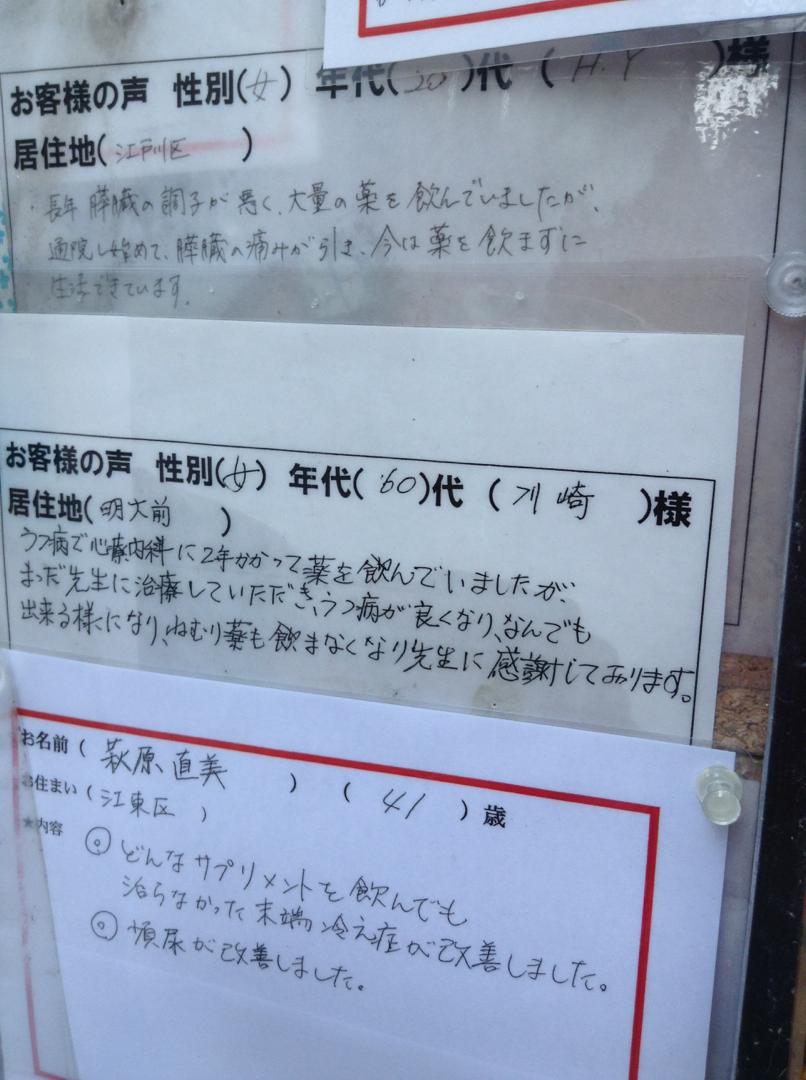 お客様の声 性別(女) 年代(20)代 (H.Y )様
居住地(江戸川区 )
・長年膵臓の調子が悪く、大量の薬を飲んでいましたが、
通院し始めて、膵臓の痛みが引き、今は薬を飲まずに
生活できています。
お客様の声 性別(女) 年代(60)代 (川崎 )様
居住地(明大前 )
うつ病で心療内科に2年かかって薬を飲んでいましたが、
まつだ先生に治療していただき、うつ病が良くなり、なんでも
出来る様になり、ねむり薬も飲まなくなり先生に感謝しております。
お名前(萩原直美 ) (41)歳
お住まい(江東区 )
★内容
◎どんなサプリメントを飲んでも
治らなかった末端冷え症が改善しました。
◎頻尿が改善しました。